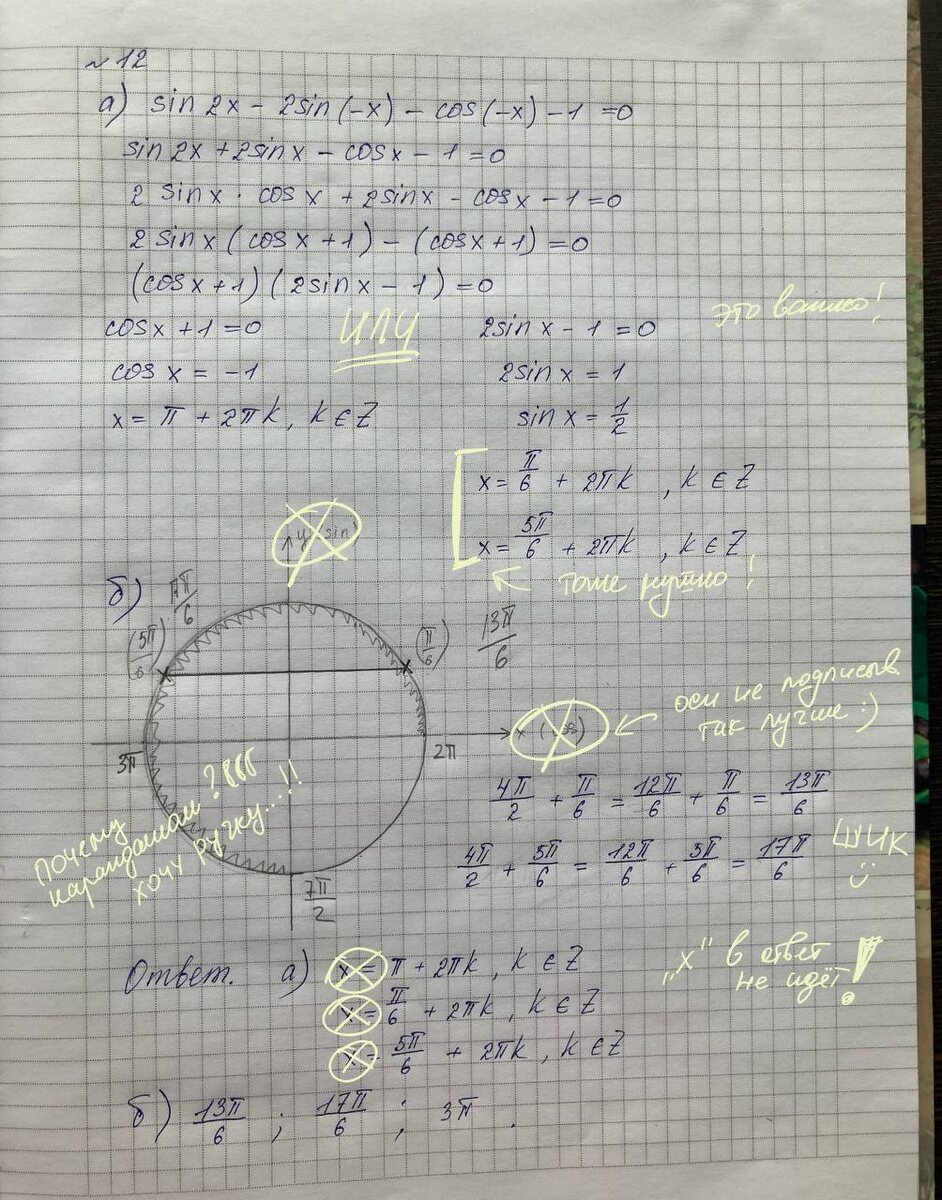 №12
а) sin 2x - 2sin(-x) - cos(-x) - 1 = 0
sin 2x + 2sin x - cos x - 1 = 0
2 sin x · cos x + 2sin x - cos x - 1 = 0
2 sin x (cos x + 1) - (cos x + 1) = 0
(cos x + 1) (2sin x - 1) = 0
cos x + 1 = 0 ИЛИ 2sin x - 1 = 0 это важно!
cos x = -1 2sin x = 1
x = π + 2πk, k ∈ Z sin x = 1/2
x = π/6 + 2πk, k ∈ Z
x = 5π/6 + 2πk, k ∈ Z
тоже нужно!
y sin
б)
17π/6
(5π/6) (π/6) 13π/6
оси не подписыв
так лучше :)
x
3π 2π
Почему
карандашом???
хочу ручку...!!
4π/2 + π/6 = 12π/6 + π/6 = 13π/6
4π/2 + 5π/6 = 12π/6 + 5π/6 = 17π/6 ШИК
7π/2
Ответ. а) x = π + 2πk, k ∈ Z
x = π/6 + 2πk, k ∈ Z
x = 5π/6 + 2πk, k ∈ Z
„x" в ответ
не идёт!
б) 13π/6 ; 17π/6 ; 3π.